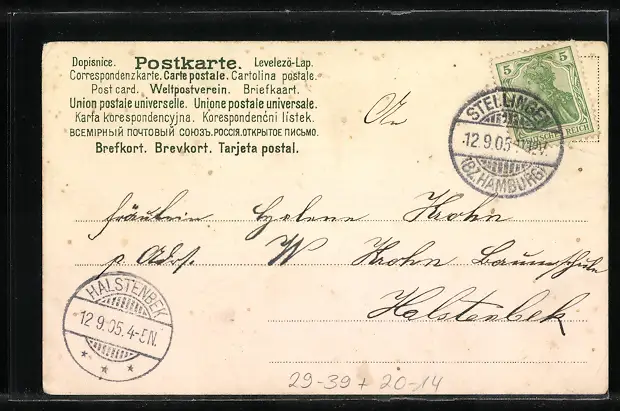 Dopisnice. Postkarte. Levelező-Lap.
Correspondenzkarte. Carte postale. Cartolina postale.
Post card. Weltpostverein. Briefkaart.
Union postale universelle. Unione postale universale.
Karta korespondencyjna. Korespondenční lístek.
ВСЕМІРНЫЙ ПОЧТОВЫЙ СОЮЗЪ. РОССІЯ. ОТКРЫТОЕ ПИСЬМО.
Brefkort. Brevkort. Tarjeta postal.
5 5
REICH
STELLINGEN
12.9.05
(BZ. HAMBURG)
An
Fräulein Helene Krohn
p Adr. W Krohn Baumschule
Halstenbek
HALSTENBEK
12 9.05. 4-5N.
* * *
29-39 + 20-14